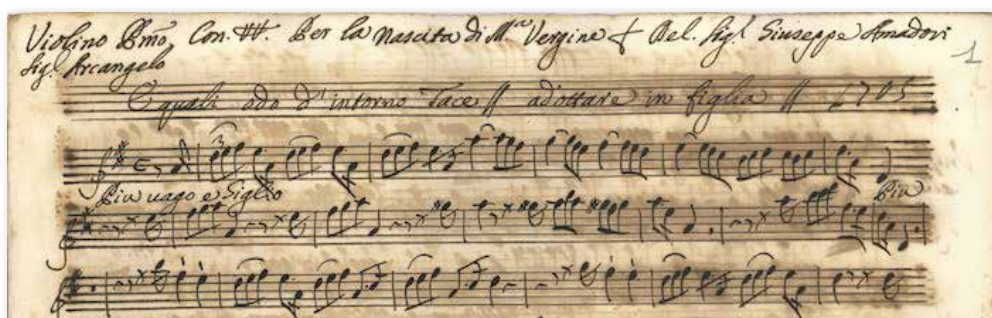 Violino Pmo Con. ##. Per la Nascita di M.a Vergine Del. Sig.r Giuseppe Amadori
1
Sig.r Arcangelo
quali odo d'intorno Tace // adottare in figlia // 1705
Piu vago e Giglio
Piu